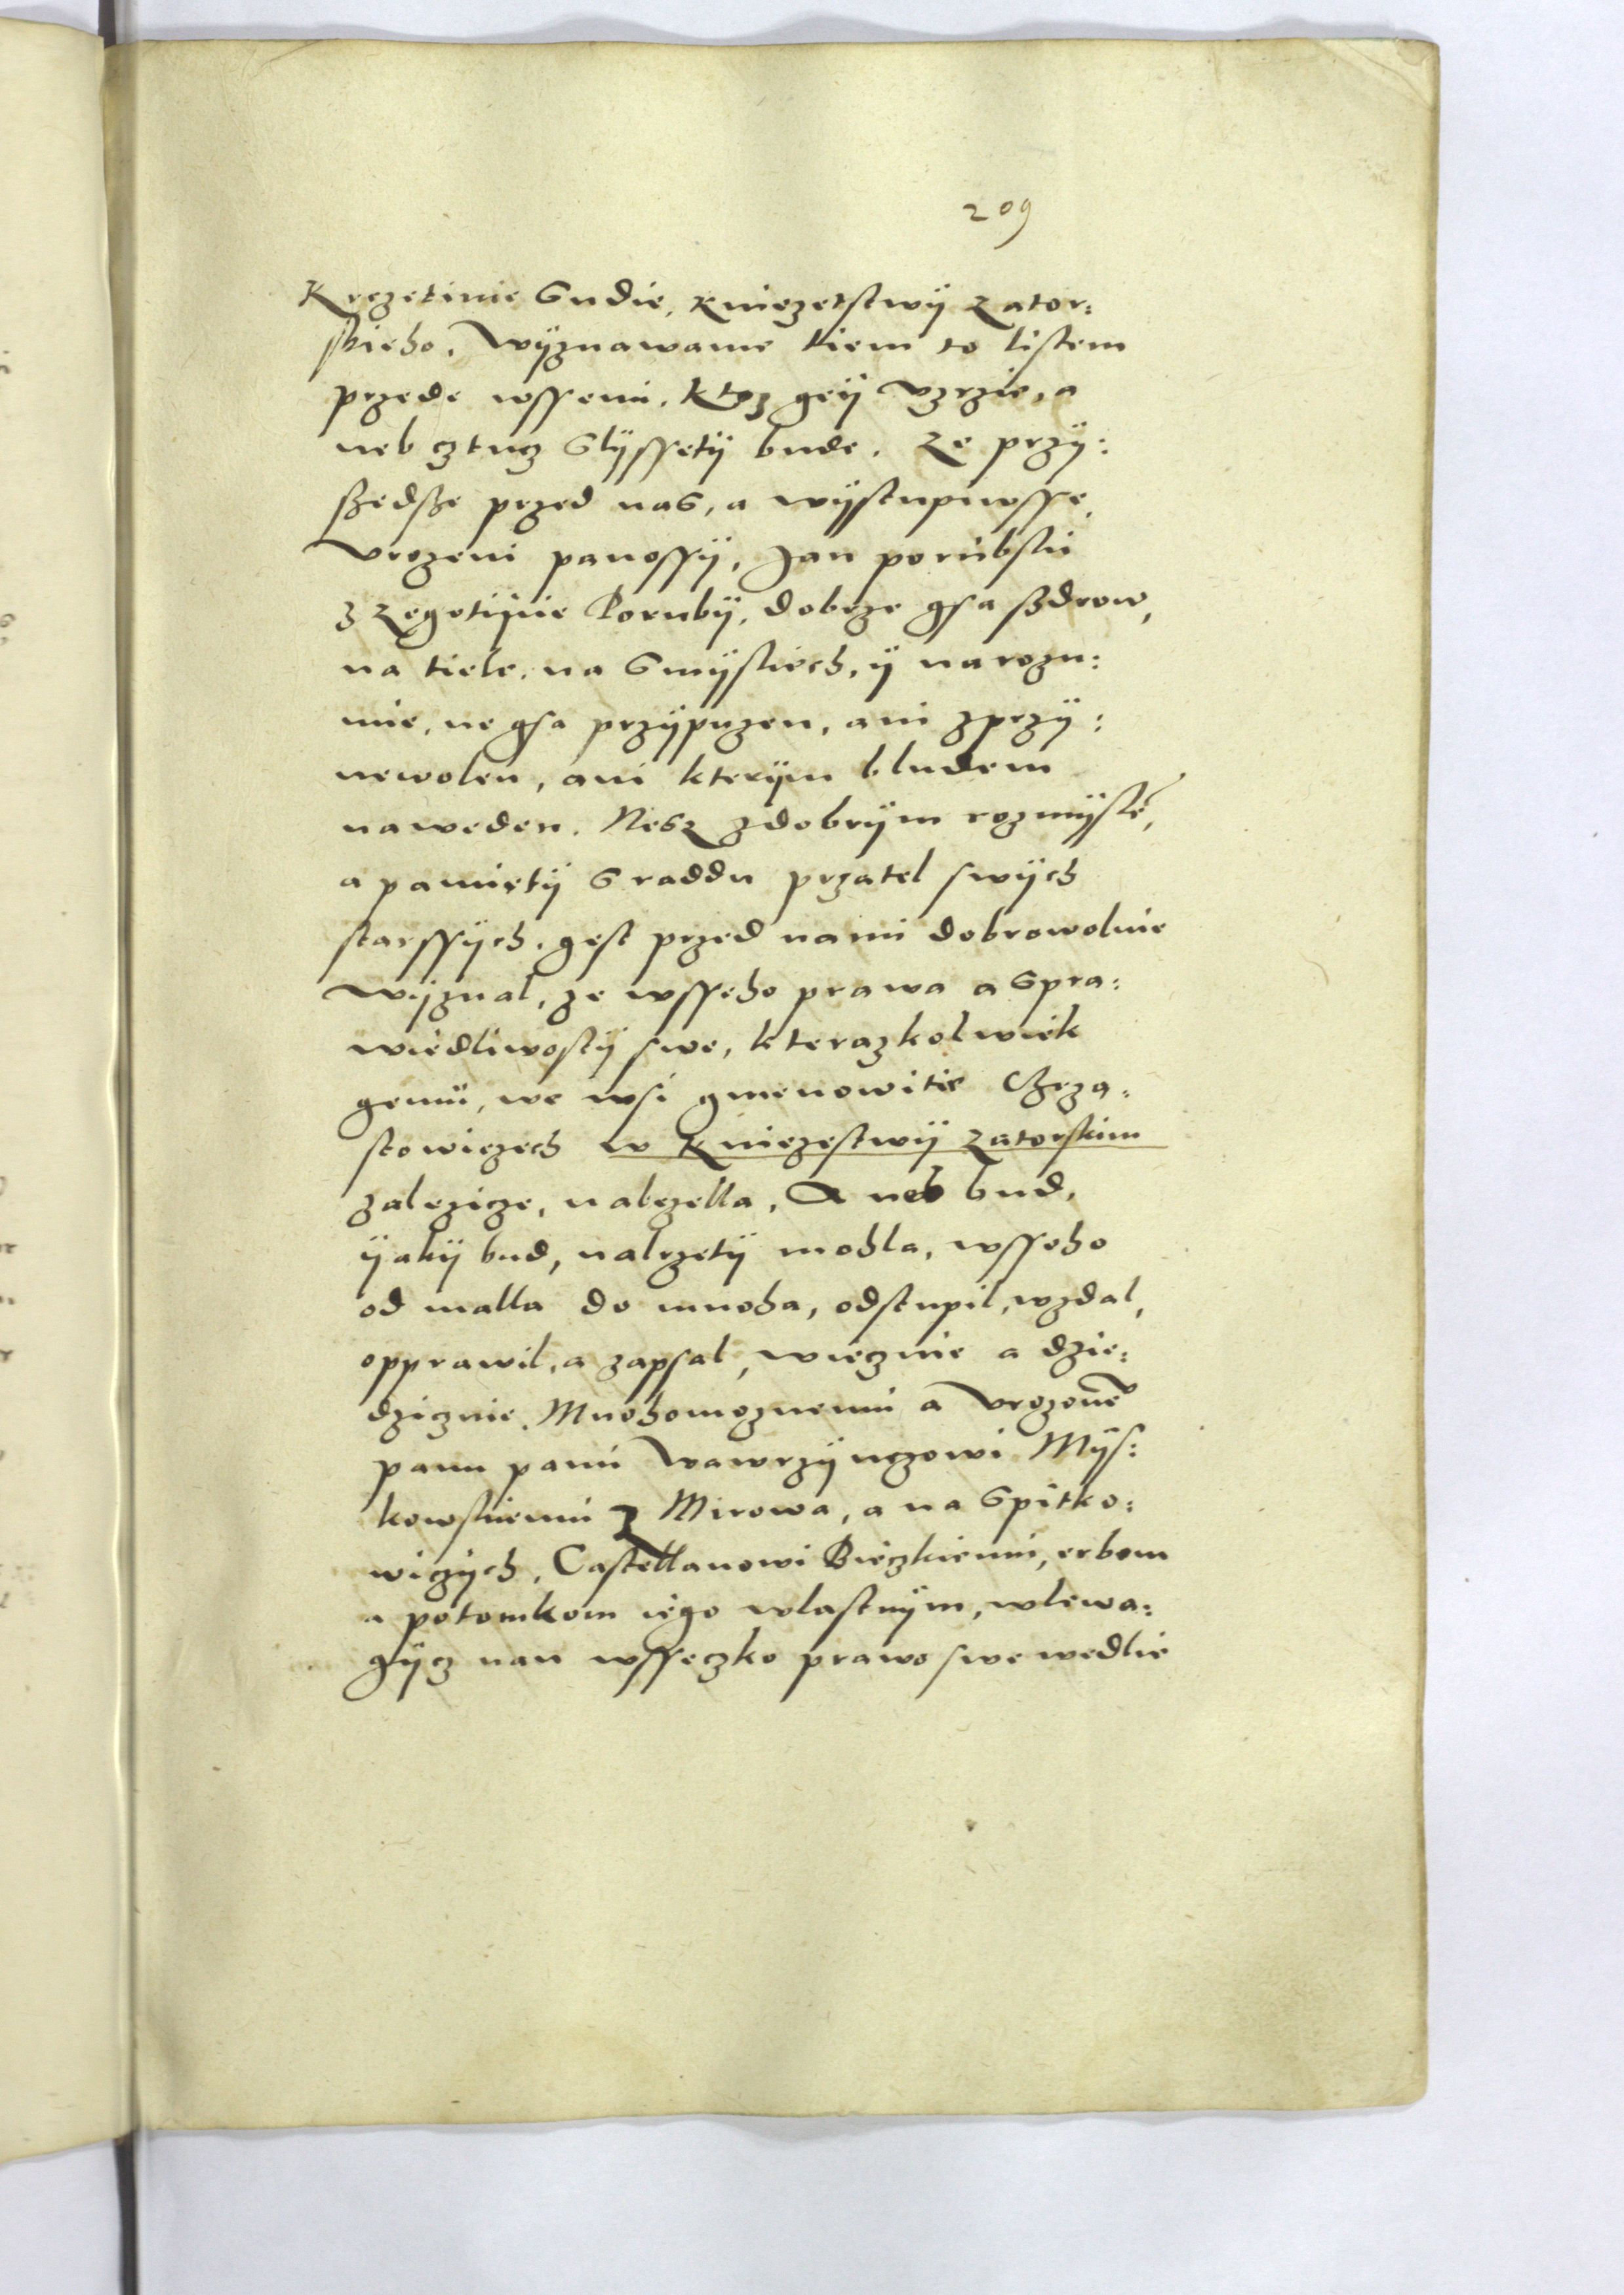 209
Krczetinie Sudie, Kniezetstwÿ Zator:
skieho. Wÿznawame tiem to listem
przede wssemi, Ktoz geÿ vzrzie, a
neb cztucz Slÿssetÿ bude. Ze przÿ:
szedsze przed nas, a wÿstupiwsse,
Vrozeni panossÿ, Jan porubski
z Zegotÿnie Porubÿ, dobrze gsa szdrow,
na tiele, na Smÿsliech, ÿ na rozu:
mie, ne gsa przÿpuzen, ani z przÿ:
newolen, ani kterÿm bludem
naweden. Nesz z dobrÿm rozmÿsle,
a pamietÿ S raddu przatel swÿch
starssÿch, gest przed nami dobrowolnie
Wÿznal, ze wsseho prawa a Spra:
wiedliwostÿ swe, kterazkolwiek
gemu, we wsi gmenowitie Chrza:
stowiczech w Kniezestwÿ Zatorskim
zalezicze, nalezella, A neb bud,
ÿakÿ bud, nalezetÿ mohla, wsseho
od malla do mnoha, odstupil, wzdal,
opprawil, a zapsal, wiecznie a dzie:
dzicznie. Mnohomoznemu a Vrozone
panu panu Wawrzÿnczowi Mÿs:
kowskiemu Z Mirowa, a na Spitko:
wiczÿch, Castellanowi Bieczkiemu, erbom
a potomkom iego wlastnÿm, wlewa:
gÿcz nan wsseczko prawo swe wedlie